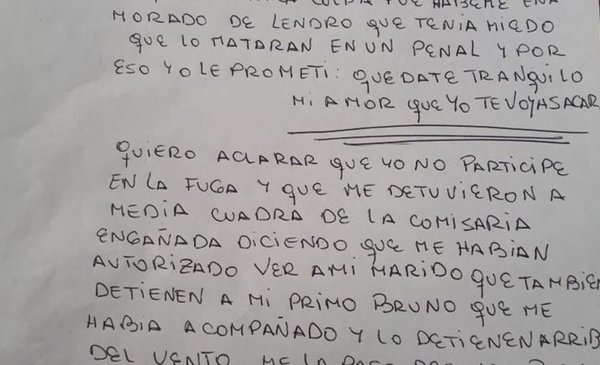 CULPA FUE HABERME ENA
MORADO DE LENDRO QUE TENIA MIEDO
QUE LO MATARAN EN UN PENAL Y POR
ESO YO LE PROMETI: QUEDATE TRANQUILO
MI AMOR QUE YO TE VOY A SACAR
QUIERO ACLARAR QUE YO NO PARTICIPE
EN LA FUGA Y QUE ME DETUVIERON A
MEDIA CUADRA DE LA COMISARIA
ENGAÑADA DICIENDO QUE ME HABIAN
AUTORIZADO VER A MI MARIDO QUE TAMBIEN
DETIENEN A MI PRIMO BRUNO QUE ME
HABIA ACOMPAÑADO Y LO DETIENEN ARRIB
DEL VENTO ME LA